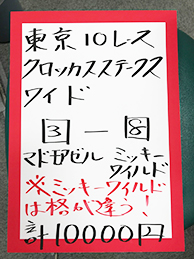 東京10レース
クロッカスステークス
ワイド
3 − 8
マドモアゼル ミッキーワイルド
※ミッキーワイルド
は格が違う!
計10000円